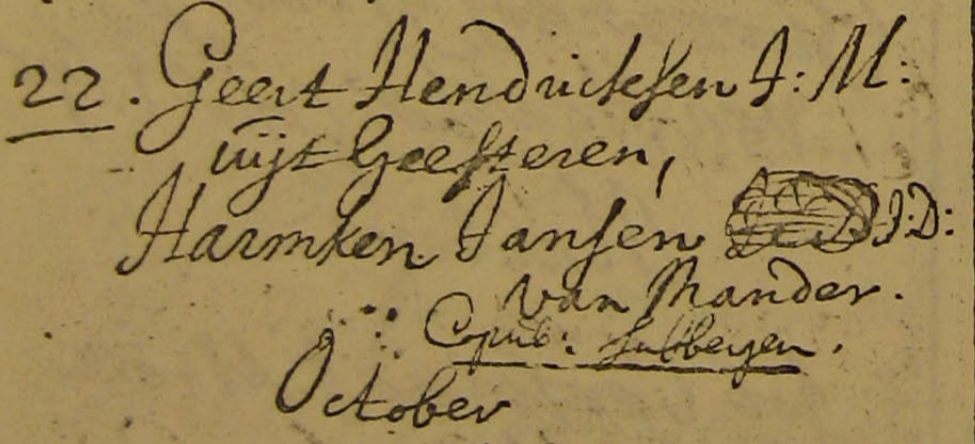 22. Geert Hendricksen J: M:
uijt Geesteren,
Harmken Jansen J:D:
van Mander.
Copul: Tubbergen.
October